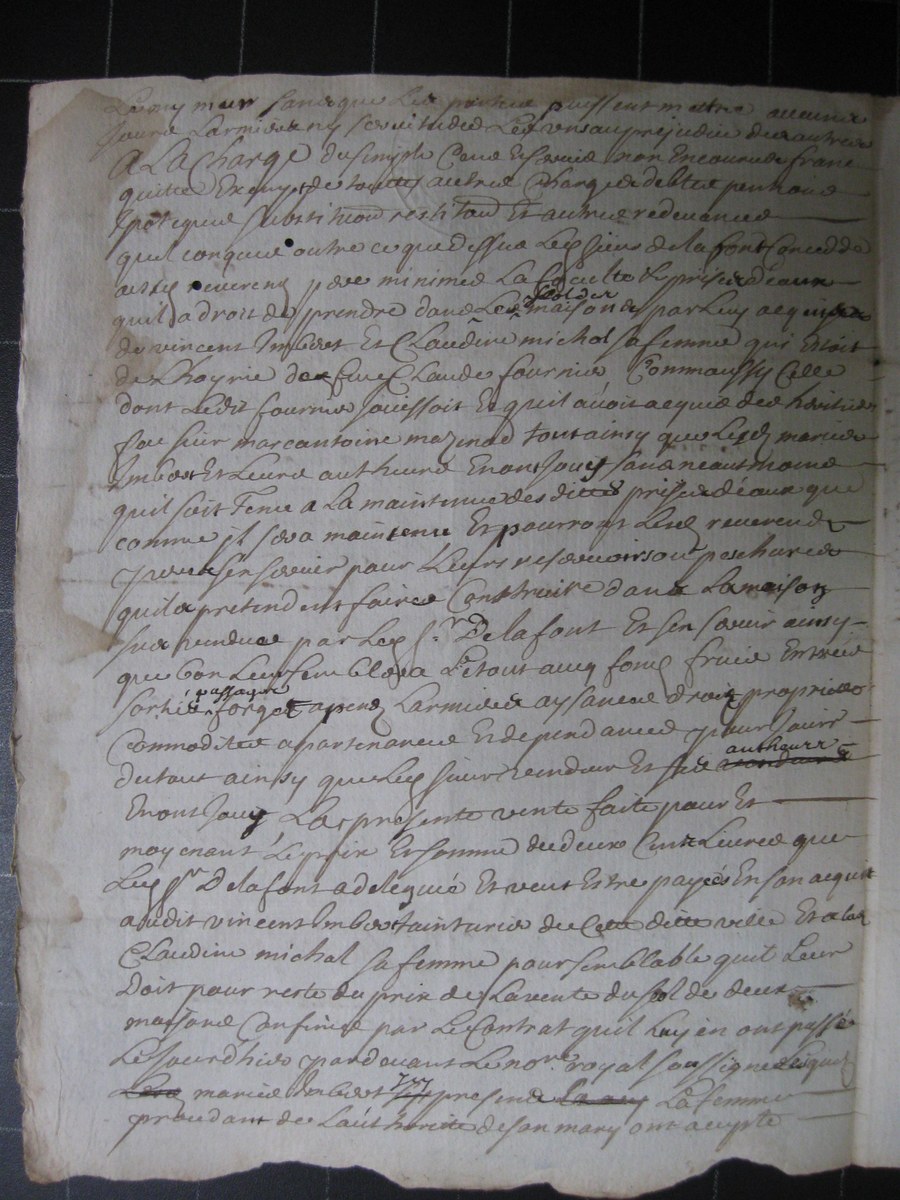 mur sans que les parties puissent mettre aucune
jours Larmiers ny servitudes Les uns au prejudice des autres
A LA Charge du simple Cens Et servis non Encourus franc
quitte Exempt de touttes autres Charges debtes pensions
ipoteques substitution restitution Et autres redevances
quelconques outre ce que dessus Lesd sieurs delafont Concedde
ausd reverend pere minimes La faculté & prise d'eaux
quil a droit de prendre dans Les sol des maisons par Luy acquises
de vincent Imbert Et CLaudine michol sa femme qui Estoit
de Lhoyrie de feu CLaude fournier Comm'aussy Celle
dont Ledit fournier jouissoit Et quil avoit acquis des heritiers
feu sieur marcantoine mazinod tout ainsy que Lesd mariés
Imbert Et Leurs autheurs En ont Jouy sans neantmoins
quil soit Tenu a La maintenue des dittes prises d'eaux que
comme jl sera maintenu Et pourront Lesd reverends
peres sen servir pour Leurs reservoirs ou pescheries
quils pretendent faire Construire dans La maison
sus vendue par Led Sr. Delafont Et sen servir ainsy
que bon Leur semblera Le tout avec fond fruis Entrées
sorties passages forgets apend Larmiers aysances droits proprietes
Commodites apartenances Et dependances pour jouir
du tout ainsy que Led sieur vendeur Et ses autheurs vendeurs
En ont Jouy La presente vente faite pour Et
moyenant Le prix Et somme de deux Cent Livres que
Led Sr. Delafont a delegués Et veut Estre payés En son acquit
audit vincent Imbert tainturier de Cette ditte ville Et a lad
CLaudine michol sa femme pour semblable quil Leur
Doit pour reste du prix de La vente du sol de deux
maisons Confinés par Le Contrat quil Luy en ont passé
Le jourdhier pardevant Le nore. royal soussigné Lesquels
mariés Imbert presend La femme
procedant de L'authorite de son mary ont accepté